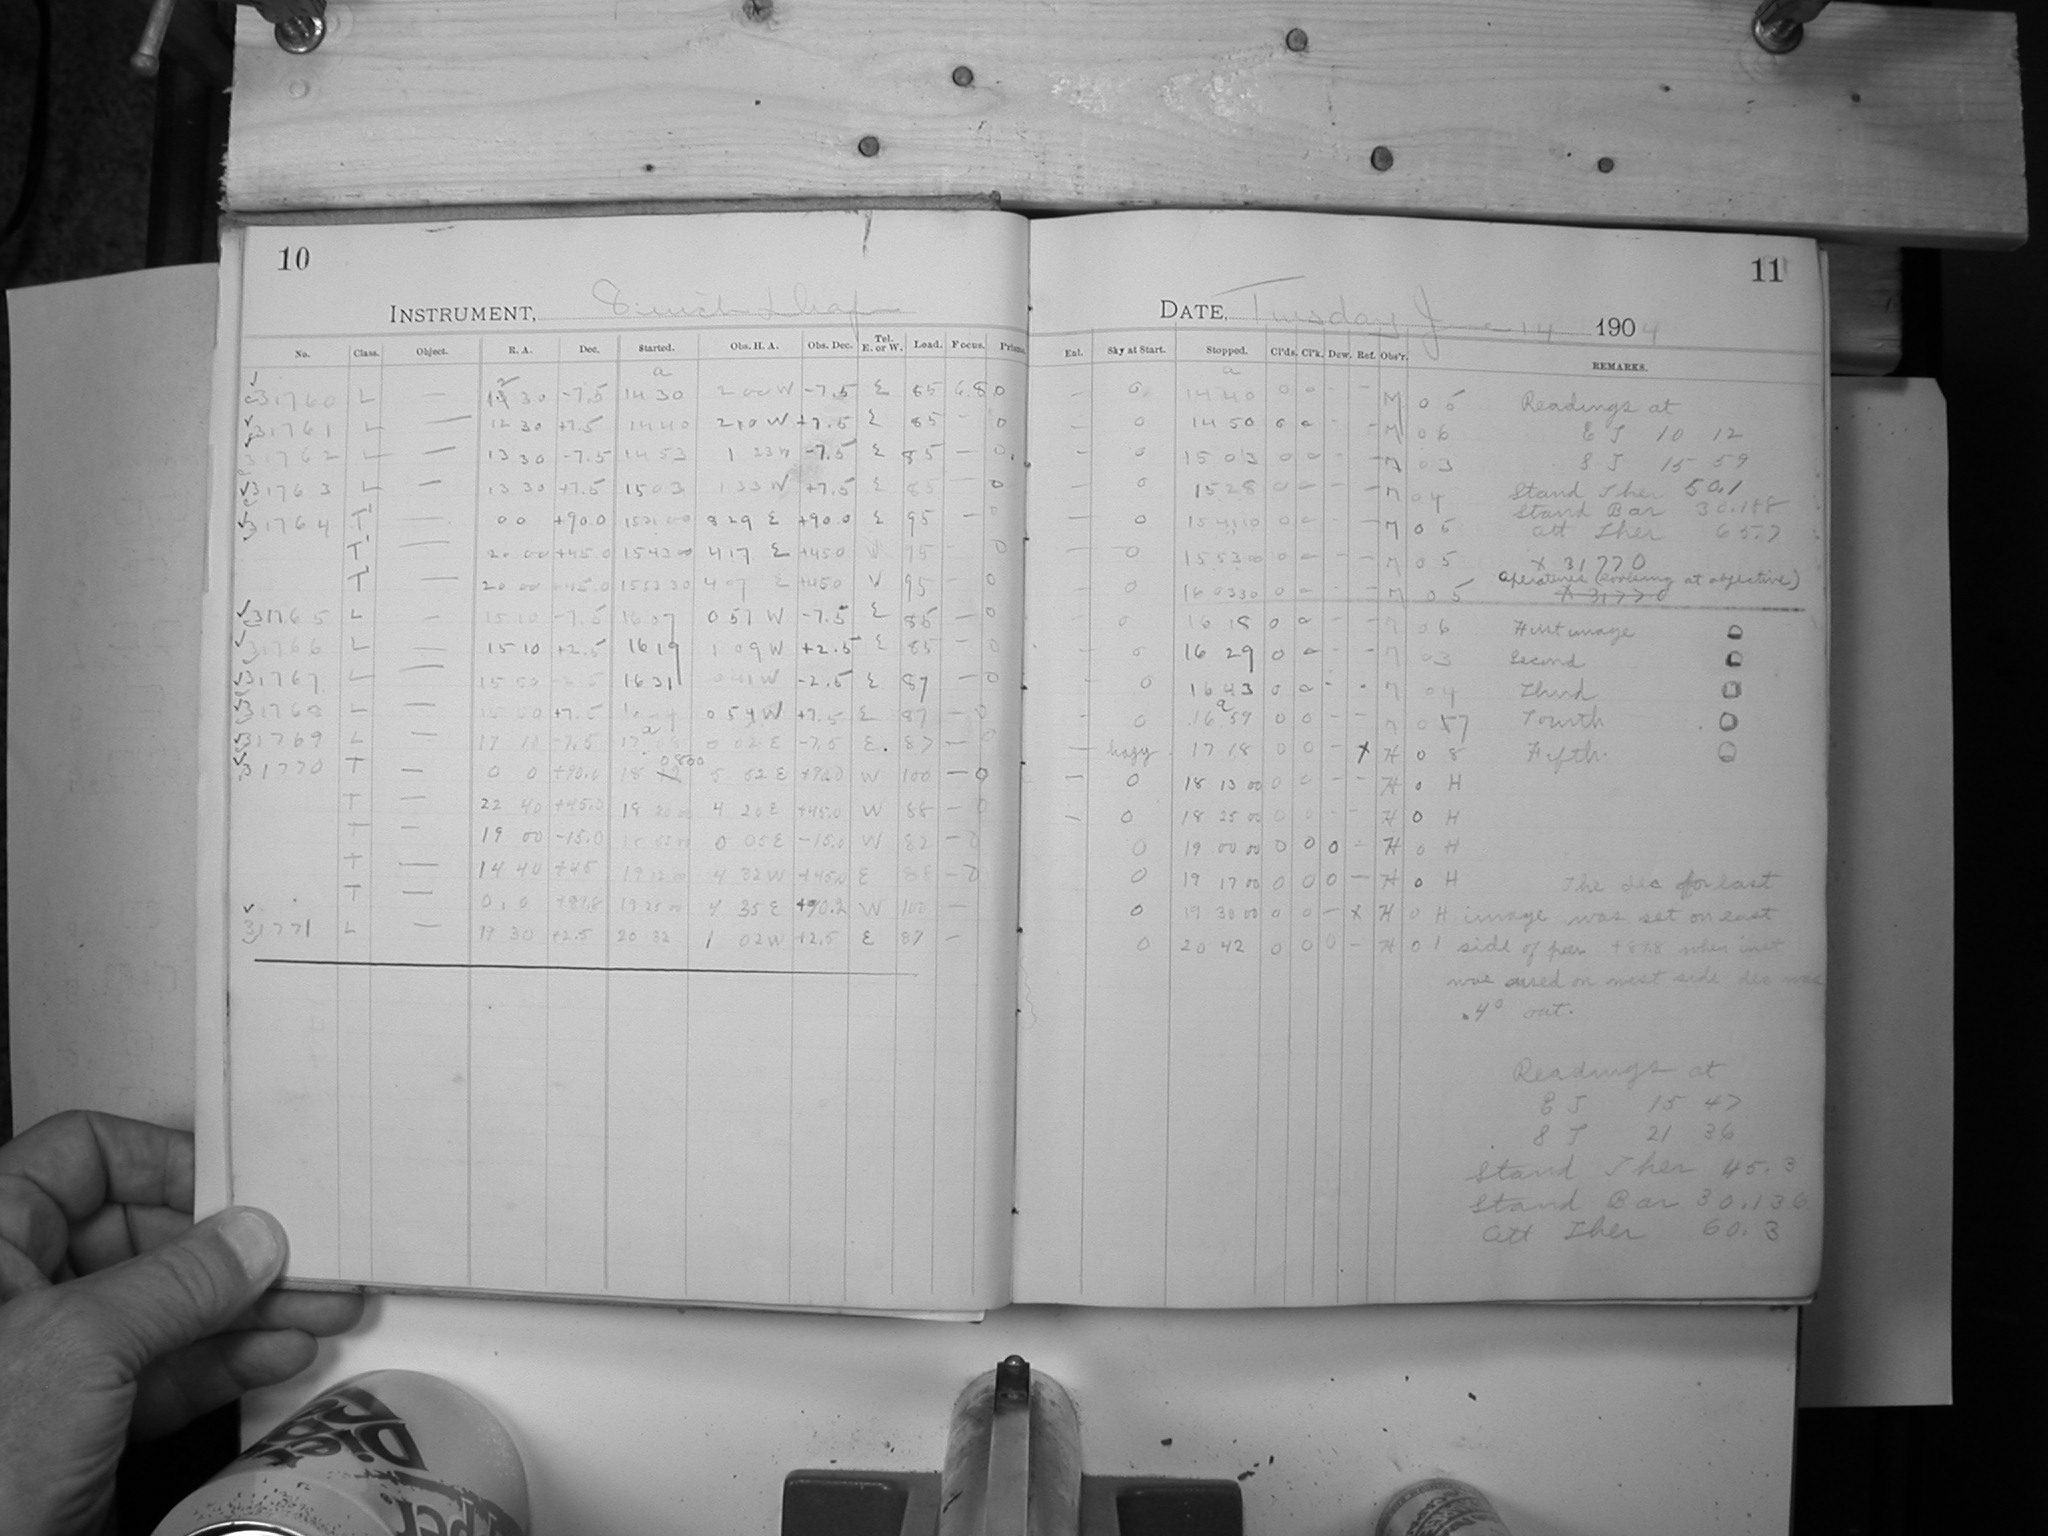 10
11
INSTRUMENT,
DATE, Tuesday June 14 1904
No. Class. Object. R. A. Dec. Started. Obs. H. A. Obs. Dec. Tel. E. or W. Load. Focus. Prisms. Eal. Sky at Start. Stopped. Cl'ds. Cl'k. Dew. Ref. Obs'r. REMARKS.
31760 L 30 -7.5 14 30 2 00 W -7.5 E 85 6.8 0 — 0 14 40 0 0 - - M 0 5 Readings at
31761 L — 12 30 +7.5 14 40 2 10 W +7.5 E 85 - 0 — 0 14 50 0 0 - - M 0 6 8 J 10 12
31762 L — 13 30 -7.5 14 53 1 23 W -7.5 E 85 — 0 — 0 15 03 0 0 - - M 0 3 8 J 15 59
31763 L — 13 30 +7.5 15 03 1 33 W +7.5 E 85 — 0 0 15 28 0 0 - - M 0 4 Stand Ther 50.1
31764 T' — 0 0 +90.0 8 29 E +90.0 E 95 - 0 — 0 0 0 - - M 0 5 Stand Bar 30.188
Att Ther 65.7
T' — 20 00 +45.0 15 43 00 4 17 E +45.0 W 95 - 0 — 0 15 53 00 0 0 - - M 0 5 x 31770
T' — 20 00 +45.0 15 53 30 4 07 E +45.0 W 95 - 0 — 0 16 03 30 0 0 - - M 0 5 Aperatures (working at objective)
x 31770
31765 L — 15 10 -7.5 16 07 0 57 W -7.5 E 85 - 0 - 0 16 18 0 0 - - M 0 6 First image
31766 L — 15 10 +2.5 16 19 1 09 W +2.5 E 85 - 0 - 0 16 29 0 0 - - M 0 3 Second
31767 L — 15 50 -2.5 16 31 0 41 W -2.5 E 87 - 0 - 0 16 43 0 0 - - M 0 4 Third
31768 L — 15 50 +7.5 0 54 W +7.5 E 87 - 0 - 0 16 59 0 0 - - M 0 Fourth
31769 L — 17 10 -7.5 17 0 02 E -7.5 E. 87 — 0 — hazy 17 18 0 0 - x H 0 8 Fifth.
31770 T — 0 0 +90.0 18 0800 5 52 E +90.0 W 100 — 0 — 0 18 13 00 0 0 - - H 0 H
T — 22 40 +45.0 18 20 00 4 20 E +45.0 W 88 - 0 — 0 18 25 00 0 0 - - H 0 H
T — 19 00 -15.0 18 55 00 0 05 E -15.0 W 82 - 0 0 19 00 00 0 0 0 - H 0 H
T — 14 40 +45 19 12 00 4 32 W +45.0 E 88 - 0 0 19 17 00 0 0 0 — H 0 H The dec for last
T — 0 0 +89.8 19 25 00 4 35 E +90.2 W 100 — 0 19 30 00 0 0 - x H 0 H image was set on east
31771 L — 19 30 +2.5 20 32 1 02 W +2.5 E 87 — 0 20 42 0 0 0 - H 0 1 side of pier +89.8 when inst
was used on west side dec was
.4° out.
Readings at
8 J 15 47
8 J 21 36
Stand Ther 45.3
Stand Bar 30.136
Att Ther 60.3
Diet